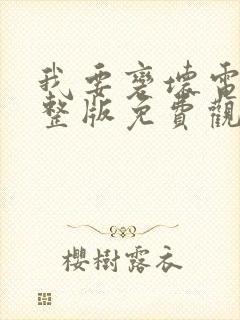 我要变坏電
整版免費觀
櫻樹露衣